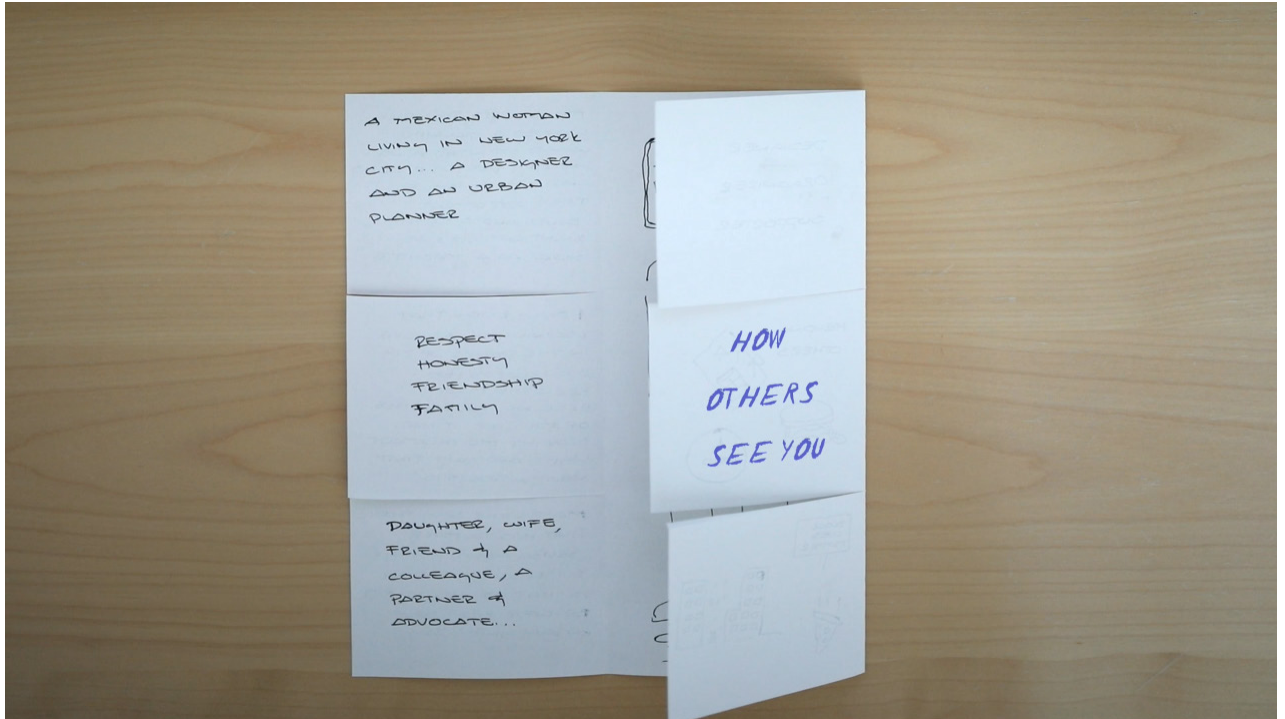 A MEXICAN WOMAN
LIVING IN NEW YORK
CITY... A DESIGNER
AND AN URBAN
PLANNER
RESPECT
HONESTY
FRIENDSHIP
FAMILY
DAUGHTER, WIFE,
FRIEND & A
COLLEAGUE, A
PARTNER &
ADVOCATE...
HOW
OTHERS
SEE YOU